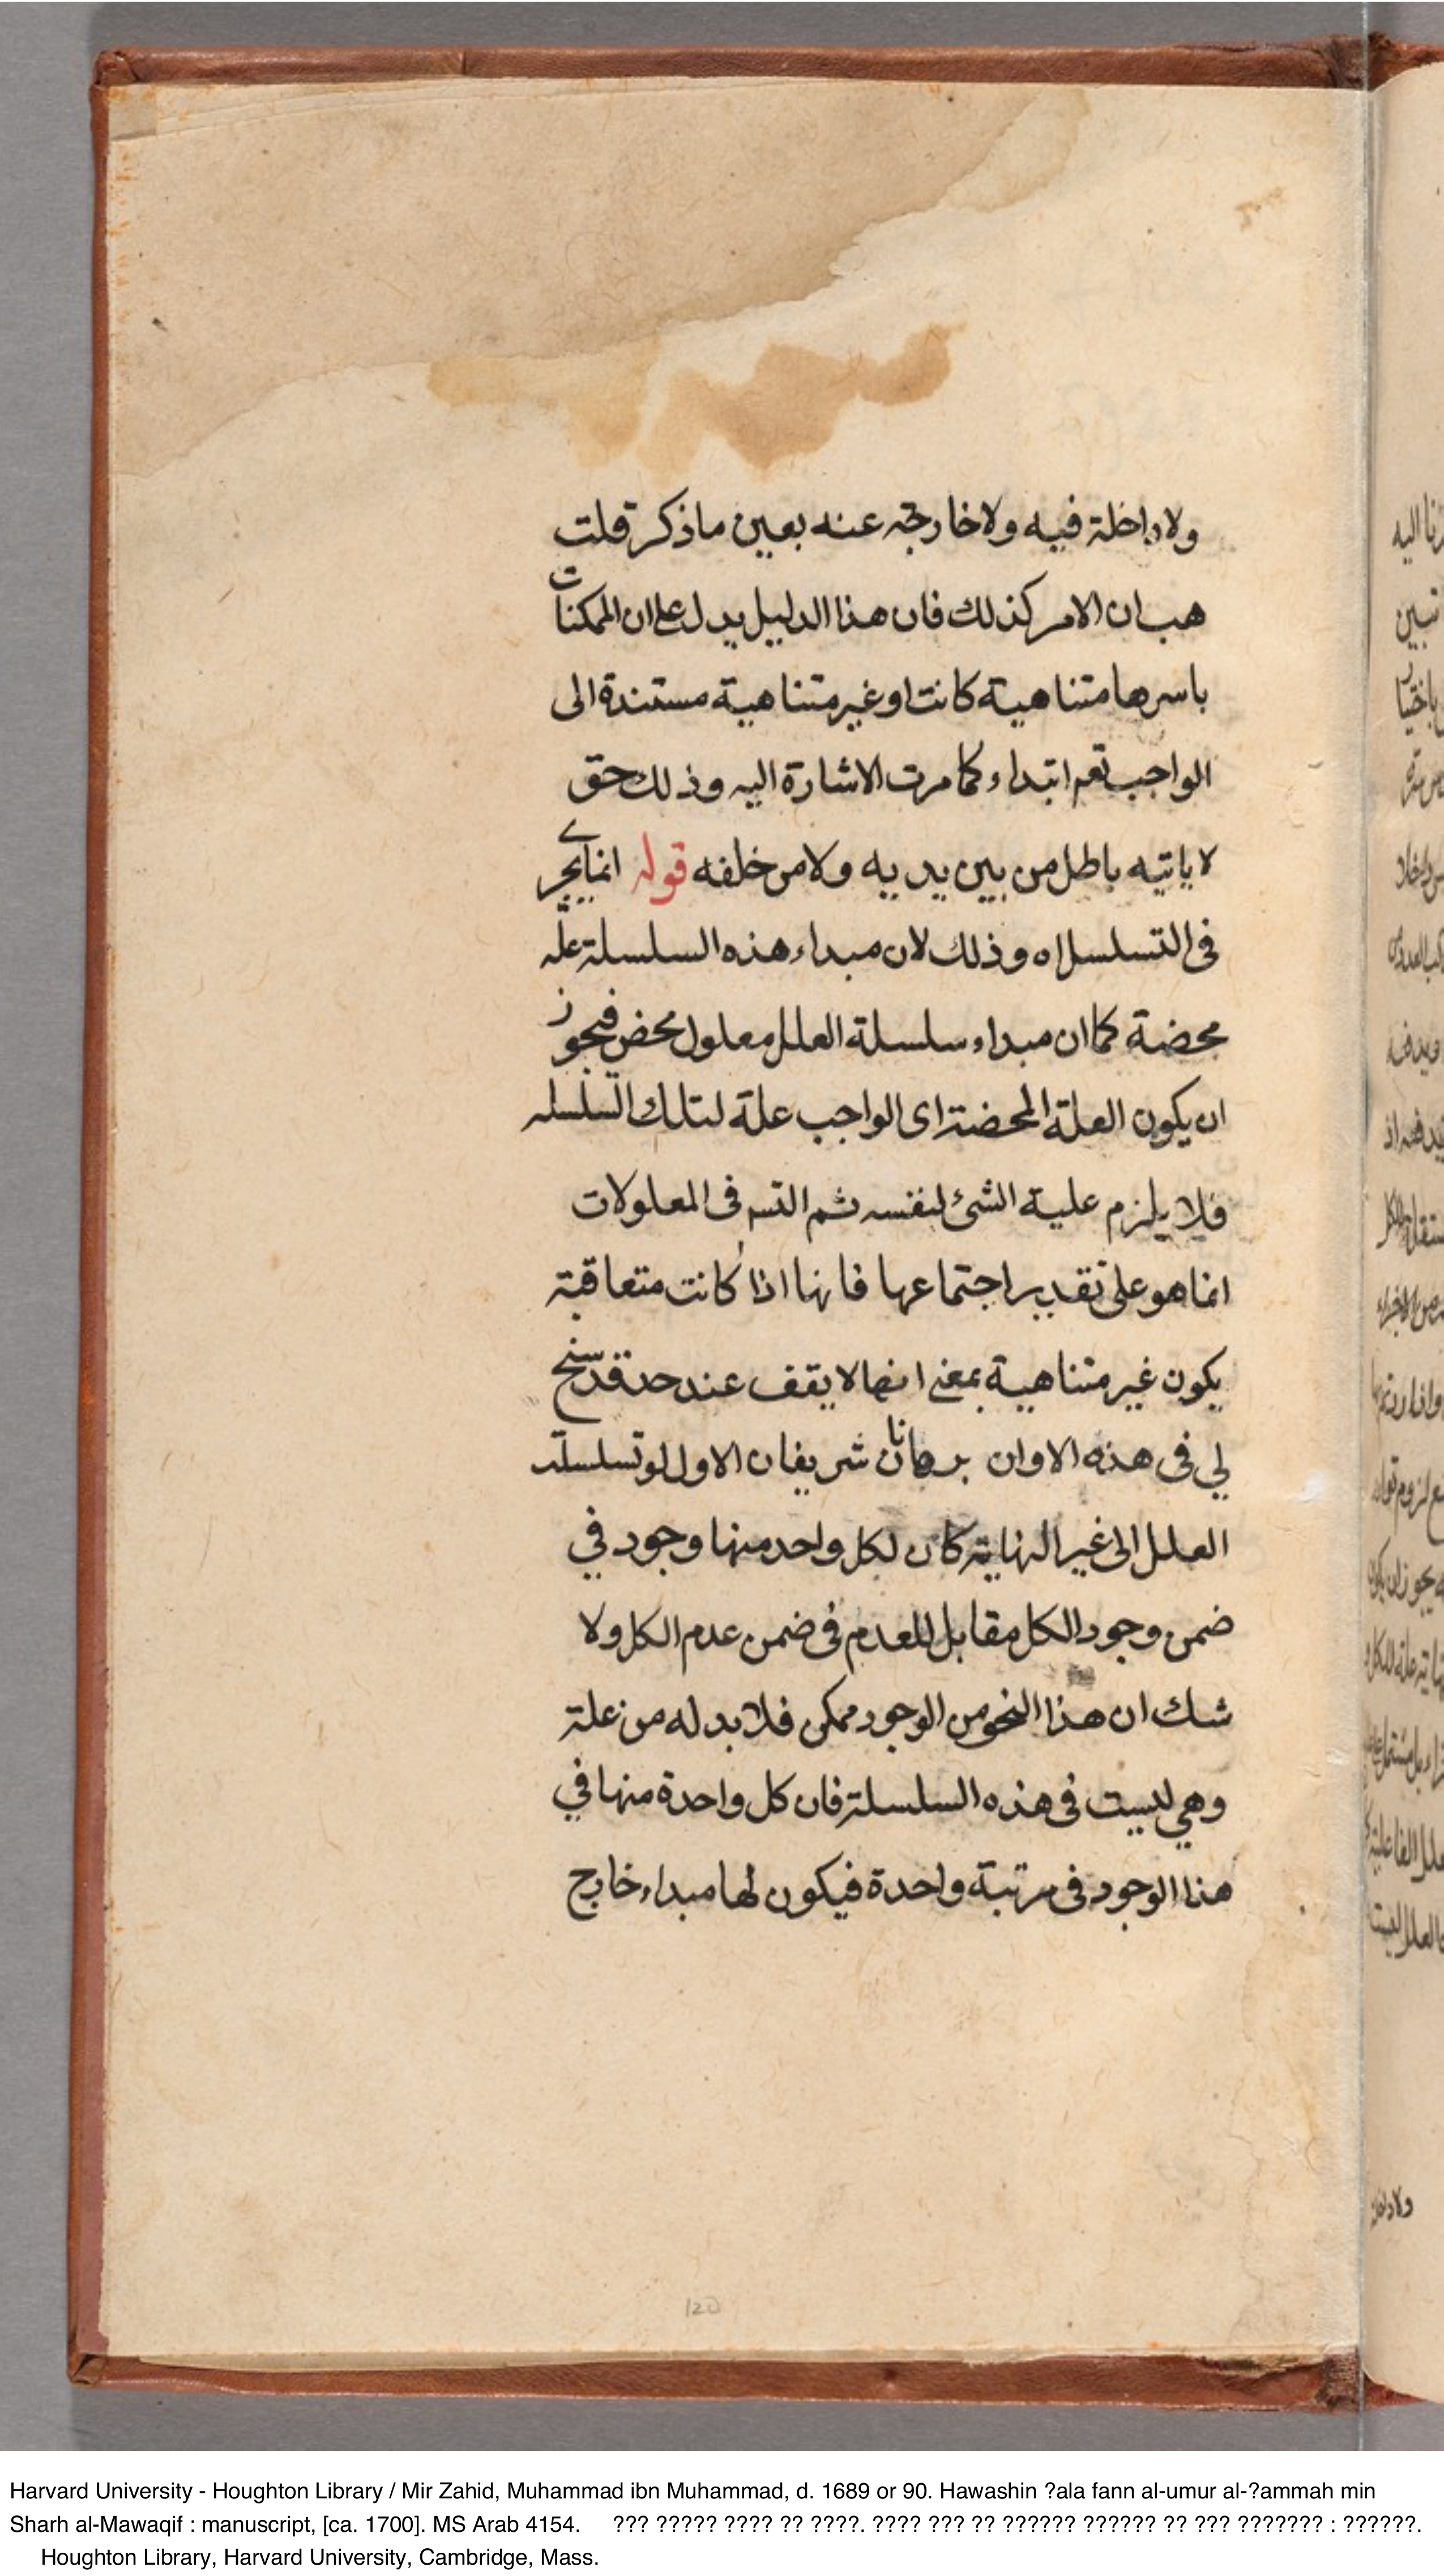 ولا داخلة فيه ولا خارجة عنه بعين ما ذكر قلت
هب ان الامر كذلك فان هذا الدليل يدل على ان الممكنات
باسرها متناهية كانت او غير متناهية مستندة الى
الواجب تعم ابتداء كما مرت الاشارة اليه وذلك حق
لا ياتيه باطل من بين يديه ولا من خلفه قوله انما يجرى
فى التسلسل اه وذلك لان مبداء هذه السلسلة علة
محضة كما ان مبداء سلسلة العلل معلول محض فيجوز
ان يكون العلة المحضة اى الواجب علة لتلك السلسله
فلا يلزم علية الشئ لنفسه ثم التسم فى المعلولات
انما هو على تقدير اجتماعها فانها اذا كانت متعاقبة
يكون غير متناهية بمعنى انها لا يقف عند حد قد سنح
لي فى هذه الاوان برهانان شريفان الاول لو تسلسلت
العلل الى غير النهاية كان لكل واحد منها وجود في
ضمن وجود الكل مقابل للعدم فى ضمن عدم الكل ولا
شك ان هذا النحو من الوجود ممكن فلا بد له من علة
وهي ليست فى هذه السلسلة فان كل واحدة منها في
هذا الوجود فى مرتبة واحدة فيكون لها مبداء خارج
ولا داخلة
120
Harvard University - Houghton Library / Mir Zahid, Muhammad ibn Muhammad, d. 1689 or 90. Hawashin ?ala fann al-umur al-?ammah min
Sharh al-Mawaqif : manuscript, [ca. 1700]. MS Arab 4154. ??? ????? ???? ?? ????. ???? ??? ?? ?????? ?????? ?? ??? ??????? : ??????.
Houghton Library, Harvard University, Cambridge, Mass.